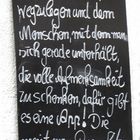 wegzulegen und dem
Menschen, mit dem man
sich gerade unterhält,
die volle Aufmerksamkeit
zu schenken, dafür gibt
es eine App! Die